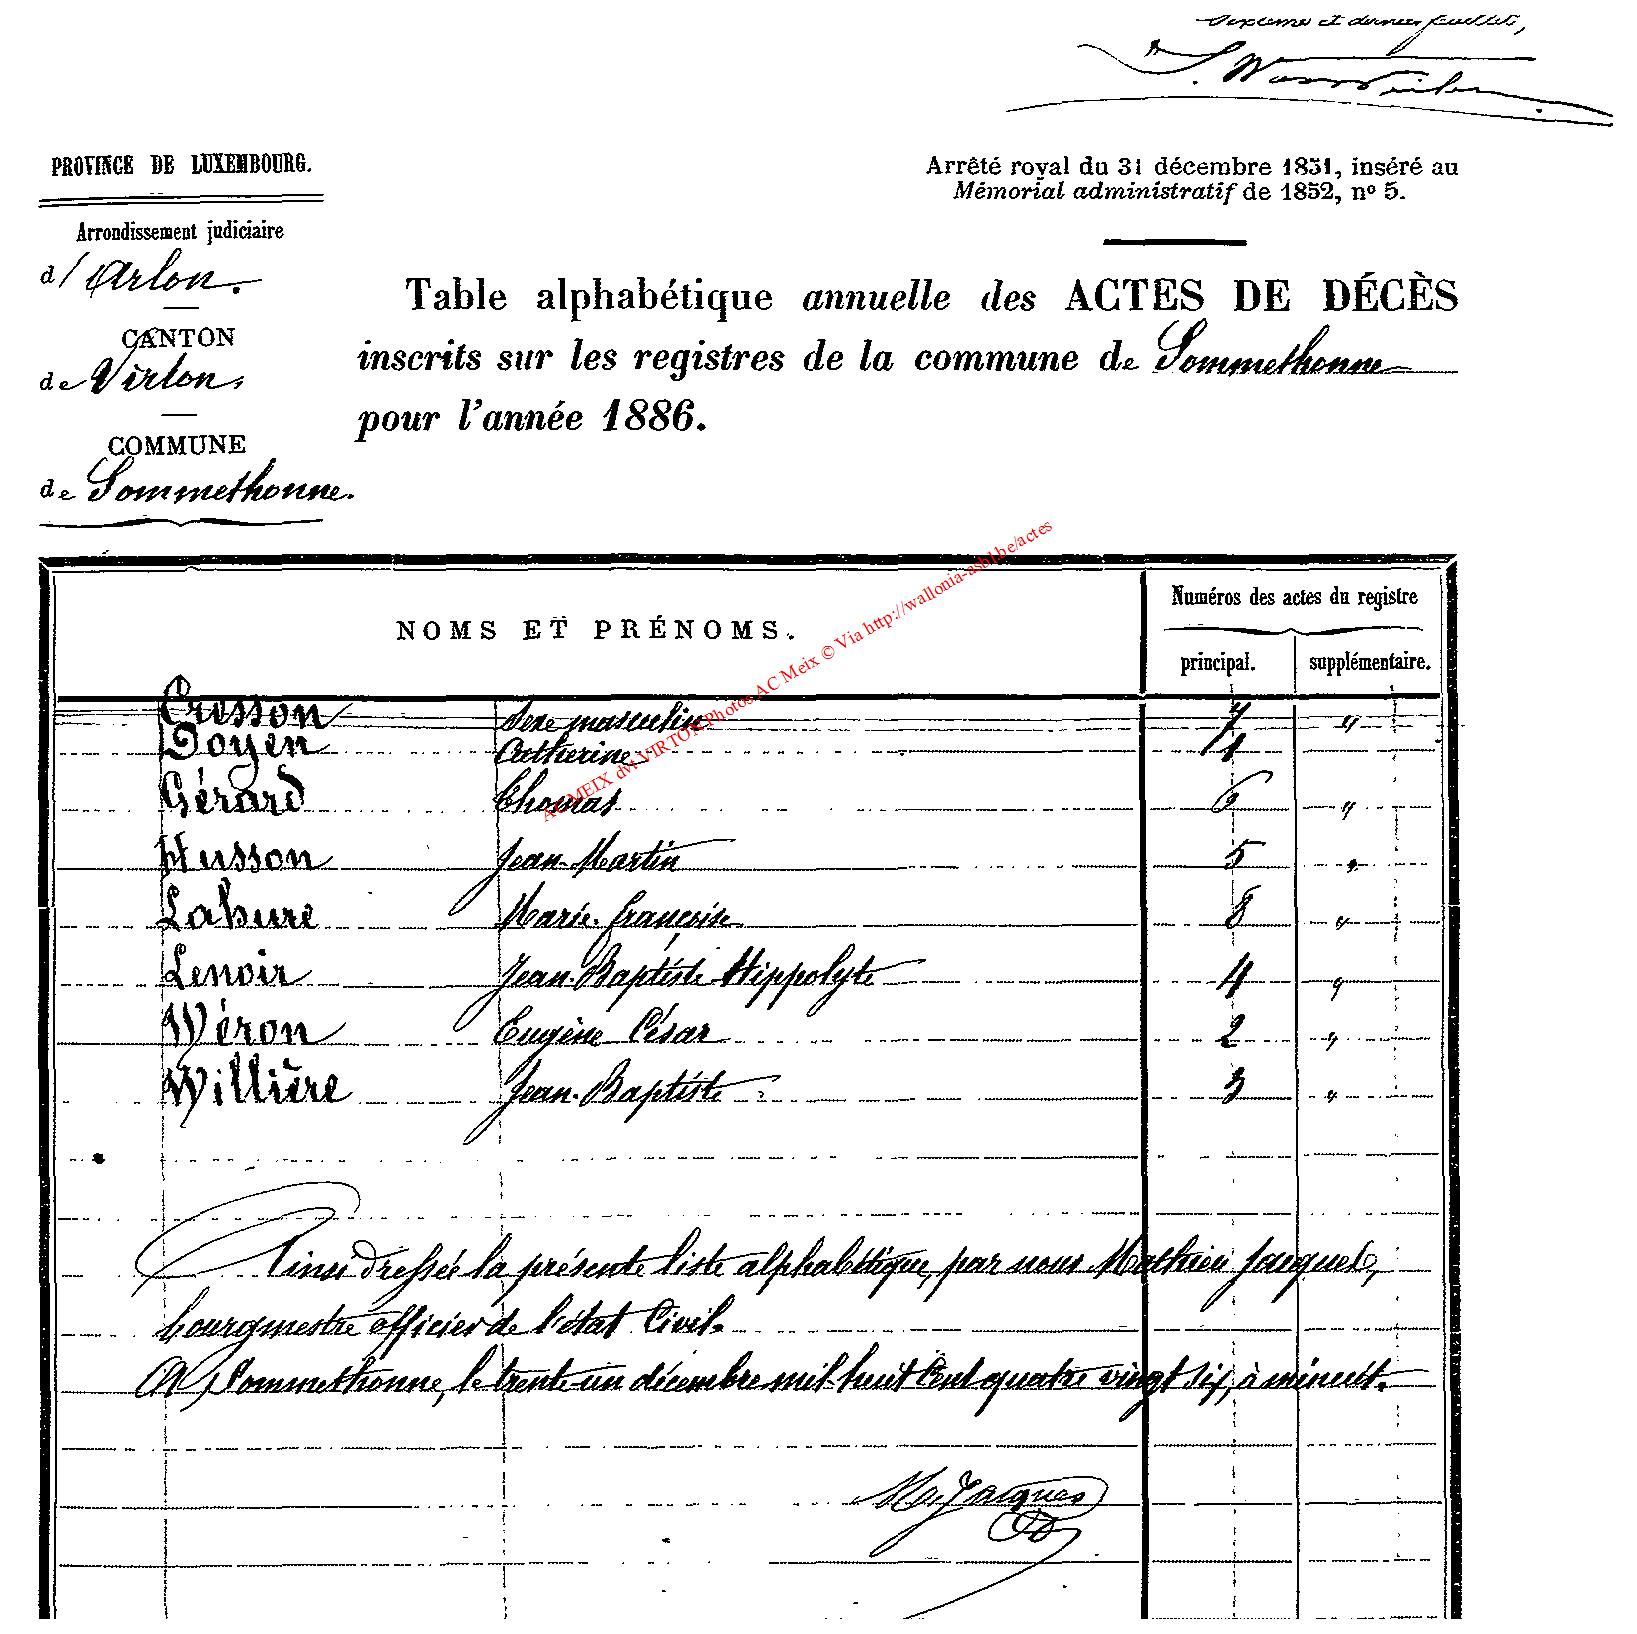 et dernier feuillet,
PROVINCE DE LUXEMBOURG.
Arrêté royal du 31 décembre 1851, inséré au
Mémorial administratif de 1852, nº 5.
Arrondissement judiciaire
d'Arlon.
CANTON
de Virton.
COMMUNE
de Sommethonne.
Table alphabétique annuelle des ACTES DE DÉCÈS
inscrits sur les registres de la commune de Sommethonne
pour l'année 1886.
NOMS ET PRÉNOMS.
Numéros des actes du registre
principal.
supplémentaire.
Cresson Sexe masculin 7 "
Doyen Catherine 1
Gérard Thomas 6 "
Husson Jean-Martin 5 "
Lahure Marie-françoise 8 "
Lenoir Jean-Baptiste Hippolyte 4 "
Wéron Eugène César 2 "
Willière Jean-Baptiste 3 "
Ainsi dressée la présente liste alphabétique, par nous Mathieu Jacques,
bourgmestre officier de l'état Civil.
A Sommethonne, le trente un décembre mil huit Cent quatre vingt six, à minuit.
M. Jacques
AC MEIX dvt VIRTON Photos AC Meix © Via http://wallonia-asbl.be/actes